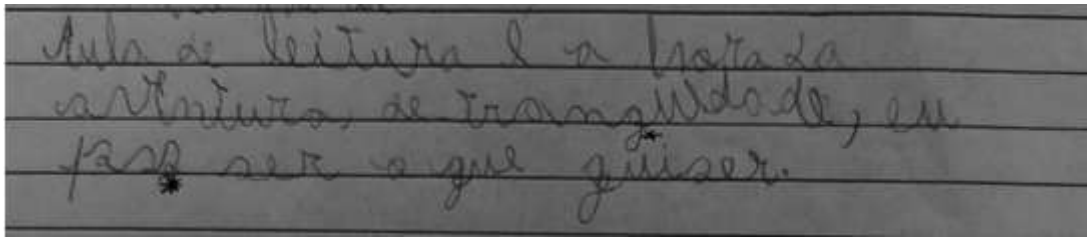 Aula de leitura é a hora da
aventura, de tranquilidade, eu
posso ser o que quiser.